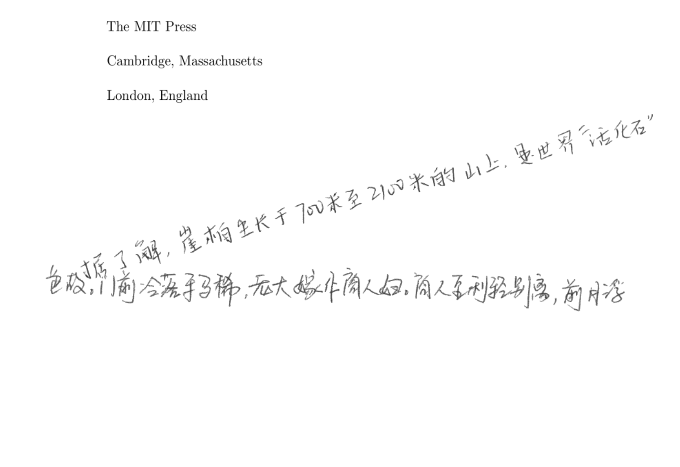 The MIT Press
Cambridge, Massachusetts
London, England
据了解，崖柏生长于700米至2100米的山上，是世界“活化石”
色故。门前冷落车马稀，老大嫁作商人妇。商人重利轻别离，前月浮